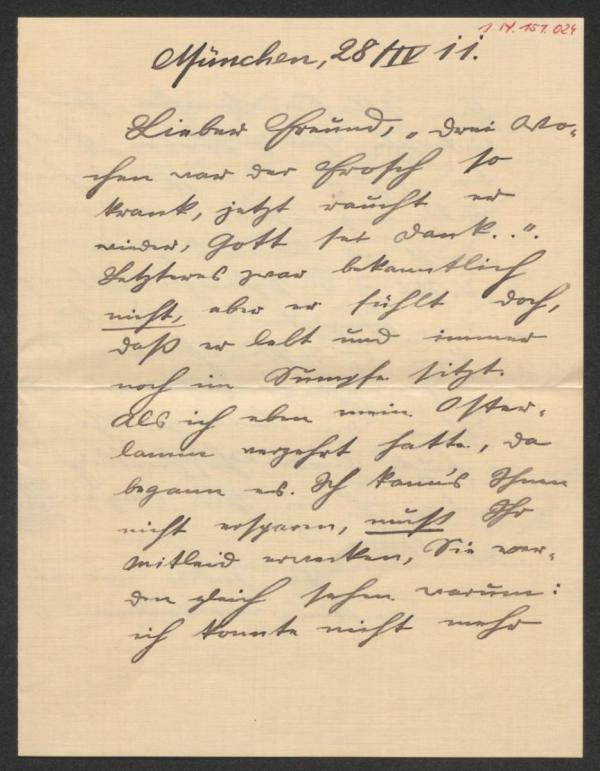 1. IV. 151. 024
München, 28/IV 11.
Lieber Freund, „drei Wo-
chen war der Frosch so
krank, jetzt raucht er
wieder, Gott sei Dank..“.
Letzteres zwar bekanntlich
nicht, aber er fühlt doch,
daß er lebt und immer
noch im Sumpfe sitzt.
Als ich eben mein Oster-
lamm verzehrt hatte, da
begann es. Ich kann's Ihnen
nicht ersparen, muß Ihr
Mitleid erwecken, Sie wer-
den gleich sehen warum:
ich konnte nicht mehr